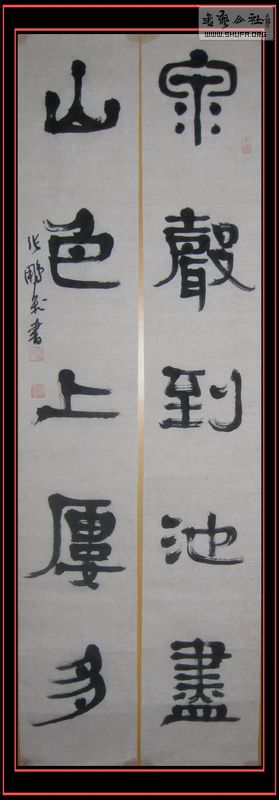 書藝公社
WWW.SHUFA.ORG
泉聲到池盡
山色上屢多
張鵬書